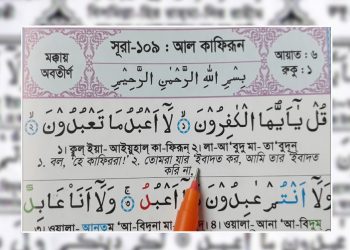 মক্কায়
অবতীর্ণ
সূরা-১০৯ : আল কাফিরূন
আয়াত : ৬
রুকু : ১
بِسْمِ اللهِ الرَّحْمٰنِ الرَّحِيْمِ
قُلْ يٰٓاَيُّهَا الْكٰفِرُوْنَ ۙ﴿١﴾ لَاۤ اَعْبُدُ مَا تَعْبُدُوْنَ ۙ﴿٢﴾
১। কুল্ ইয়া- আইয়ুহাল্ কা-ফিরূন্ ২। লা-আ'বুদু মা- তা'বুদূন্
১. বল, 'হে কাফিররা!' ২. তোমরা যার 'ইবাদত কর, আমি তার 'ইবাদত
করি না,
وَلَاۤ اَنْتُمْ عٰبِدُوْنَ مَاۤ اَعْبُدُ ۚ﴿٣﴾ وَلَاۤ اَنَا عَابِدٌ
৩। ওয়ালা- আন্তুম্ 'আ-বিদূনা মা- আ'বুদ্। ৪। ওয়ালা- আনা 'আ-বিদুম্